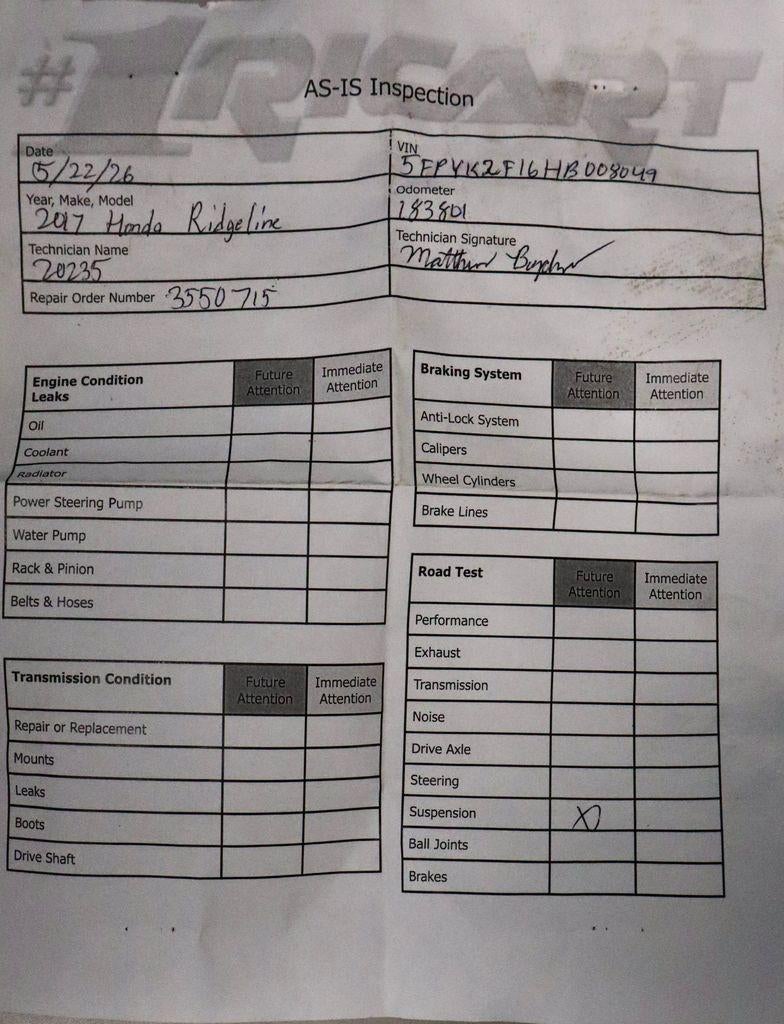 #1 RICART
AS-IS Inspection
Date
5/22/26
VIN
5FPYK2F16HB008049
Year, Make, Model
2017 Honda Ridgeline
Odometer
183801
Technician Name
20235
Technician Signature
Matthew
Repair Order Number 3550715
Engine Condition
Leaks
Future
Attention
Immediate
Attention
Oil
Coolant
Radiator
Power Steering Pump
Water Pump
Rack & Pinion
Belts & Hoses
Transmission Condition
Future
Attention
Immediate
Attention
Repair or Replacement
Mounts
Leaks
Boots
Drive Shaft
Braking System
Future
Attention
Immediate
Attention
Anti-Lock System
Calipers
Wheel Cylinders
Brake Lines
Road Test
Future
Attention
Immediate
Attention
Performance
Exhaust
Transmission
Noise
Drive Axle
Steering
Suspension X
Ball Joints
Brakes